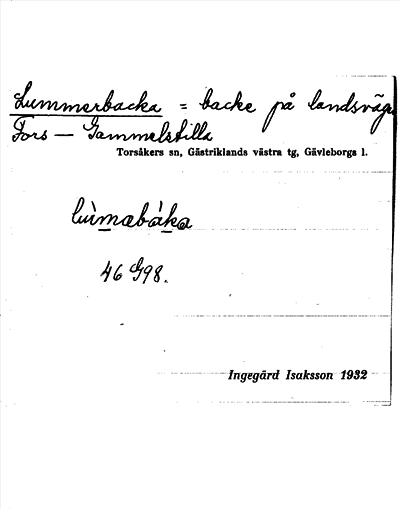 Lummerbacka = backe på landsväge
Fors — Gammelstilla
Torsåkers sn, Gästriklands västra tg, Gävleborgs l.
lùmabàka
46 G98.
Ingegärd Isaksson 1932